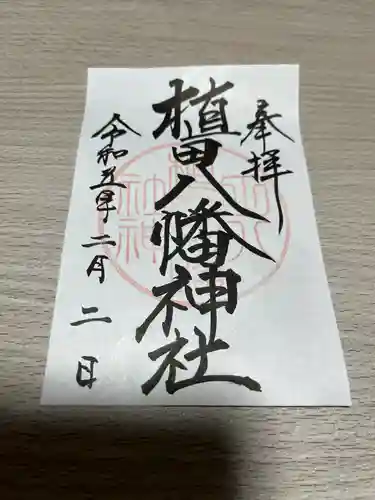 奉拝
植田八幡神社
令和五年二月二日